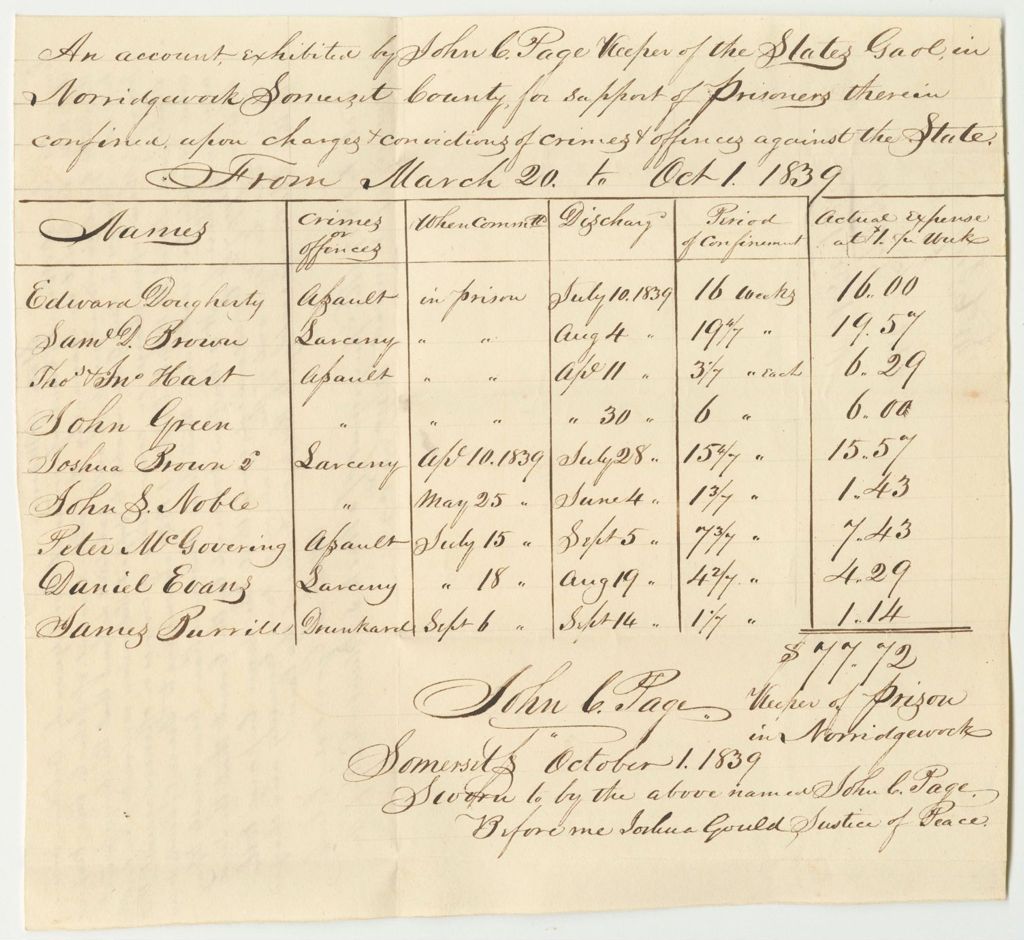 An account, exhibited by John C. Page Keeper of the States Gaol, in
Norridgewock Somerset County, for support of Prisoners therein
confined, upon charges & convictions of crimes & offences against the State.
From March 20. to Oct 1. 1839
Names Crimes or offences When Committd Discharg Period of Confinement Actual Expense at $1. per Week
Edward Dougherty Assault in prison July 10. 1839 16 weeks 16.00
Saml D. Brown Larceny " " Aug 4 " 19 4/7 " 19.57
Thos & Jno Hart Assault " " Apl 11 " 3 1/7 " each 6.29
John Green " " " " 30 " 6 " 6.00
Joshua Brown 2d Larceny Apl 10. 1839 July 28 " 15 4/7 " 15.57
John S. Noble " May 25 " June 4 " 1 3/7 " 1.43
Peter McGovering Assault July 15 " Sept 5 " 7 3/7 " 7.43
Daniel Evans Larceny " 18 " Aug 19 " 4 2/7 " 4.29
James Burrill Drunkard Sept 6 " Sept 14 " 1 1/7 " 1.14
$77.72
John C. Page Keeper of Prison
in Norridgewock
Somerset Ss October 1. 1839
Sworn to by the above named John C. Page.
Before me Joshua Gould Justice of Peace.